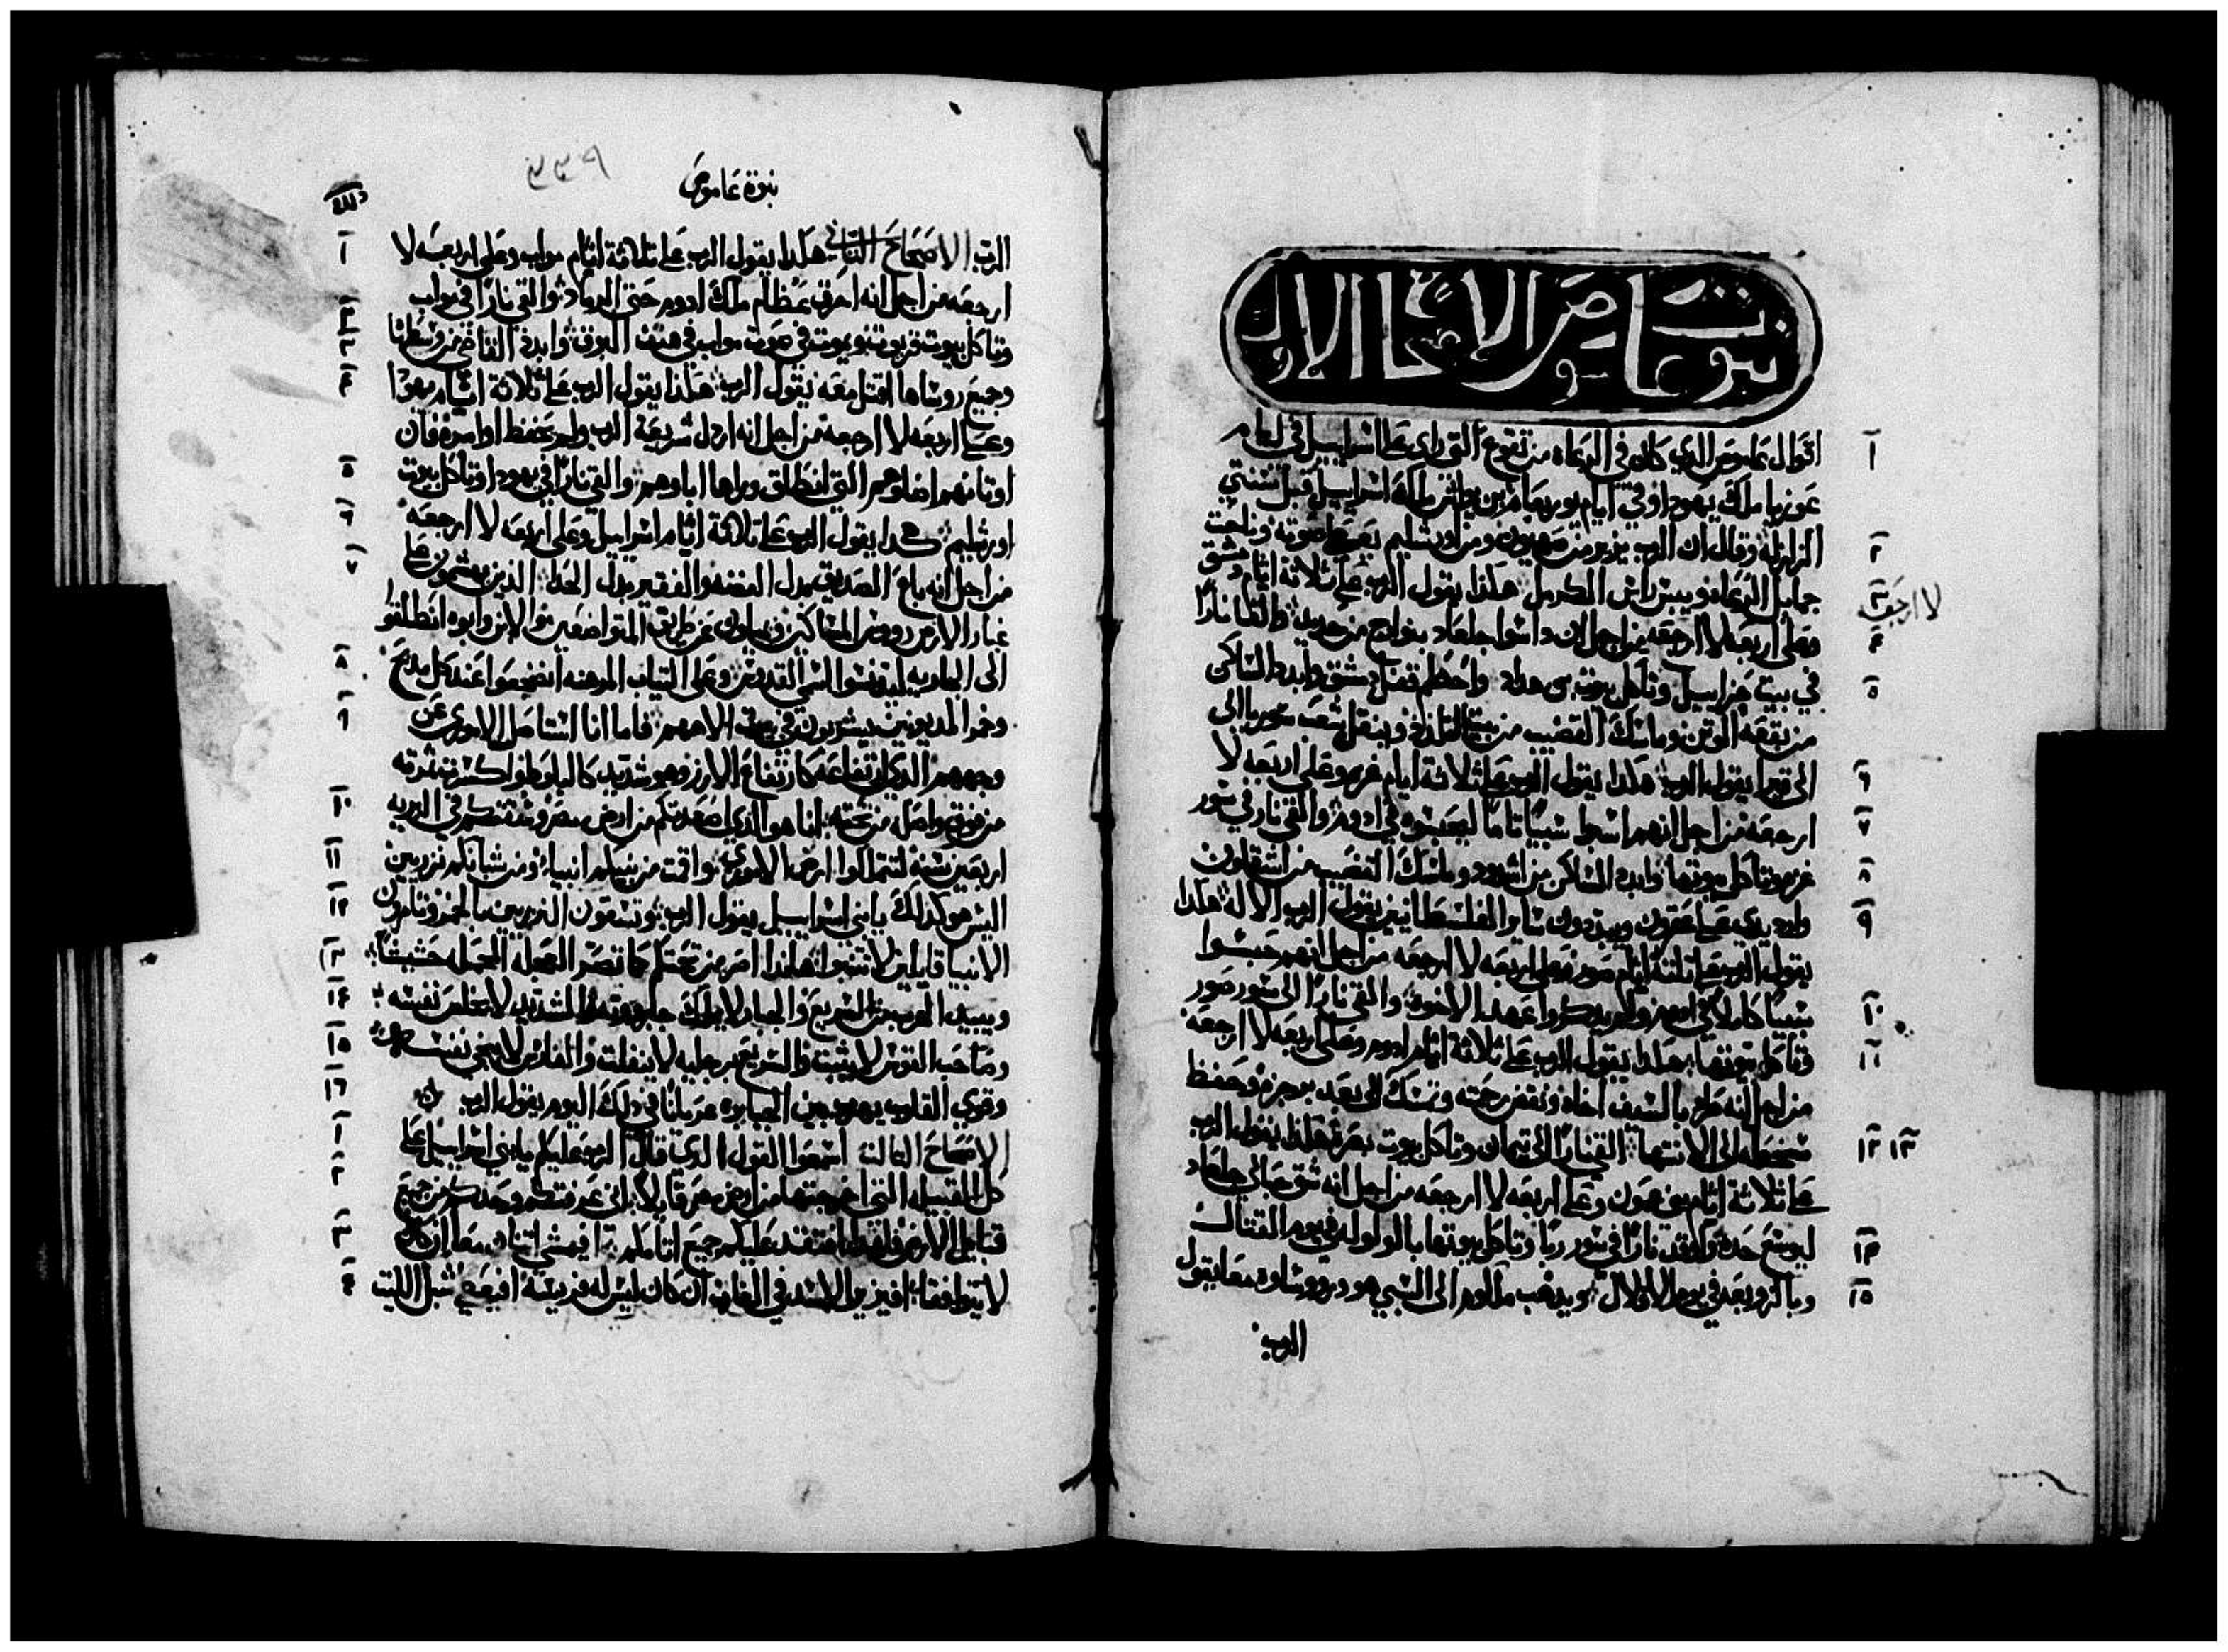 نبوت عاموص الاصحاح الاول
اقوال عاموص الدي كان في الرعاه من تقوع التي راي علي اسراييل في ايام
عوزيا ملك يهودا وفي ايام يوربعام بن يواش ملك اسراييل قبل سنتي
الزلزله وقال ان الرب يزير من صهيون ومن اورشليم يعطي صوته وناحت
جمايل الرعاه ويبس راس الكرمل هكذا يقول الرب علي ثلاثة اثام دمشق
وعلي اربعه لا ارجعه من اجل ان داسوا جلعاد بنوارج من حديد والقا نارا
لا ارجعه
في بيت حزاييل وتاكل بيوت بن هداد واحطم قفل دمشق وابده الساكن
من بقعه الوتن وماسك القضيب من بيت اللذه وينقل شعب سوريا الي
الي قيرا يقول الرب هكذا يقول الرب علي ثلاثة اثام غزه وعلي اربعه لا
ارجعه من اجل انهم اسبوا سبيا تاما ليحبسوه في ادوم والقي نار في سور
غزه وتاكل بيوتها وابده الساكن من اشدود وماسك القضيب من اشقلون
وارد يدي علي عقرون ويبيدون ساير الفلسطانيين يقول الرب الاله هكذا
يقول الرب علي ثلثة اثام صور وعلي اربعه لا ارجعه من اجل انهم حبسوا
سبيا كاملا في ادوم ولم يدكروا عهد الاخوه والقي نارا الي سور صور
وتاكل بيوتها هكذا يقول الرب علي ثلاثة اثام ادوم وعلي اربعه لا ارجعه
من اجل انه طرد بالسيف اخاه ونقض رحمته وتمسك الي بعد برجزه وحفظ
سخطه الي الانتها القي نارا الي تيمان وتاكل بيوت بصره هكذا يقول الرب
علي ثلاثة اثام بني عمون وعلي اربعه لا ارجعه من اجل انه شق حبالي جلعاد
ليوسع حده واوقد نارا في سور ربا وتاكل بيوتها بالولوله في يوم القتال
وبالزوبعه في يوم الازلال ويدهب ملكوم الي السبي هو وروساوه معا يقول
الرب
نبوة عاموص
الرب الاصحاح التاني هكدا يقول الرب علي ثلاثة اثام مواب وعلي اربعه لا
ارجعه من اجل انه احرق عظام ملك ادوم حتي الرماد والقي نارا في مواب
وتاكل بيوت قريوت ويموت في صوت مواب في هتف البوق وابده القاضي من وسطها
وجميع روساها اقتل معه يقول الرب هكذا يقول الرب علي ثلاثة اثام يهودا
وعلي اربعه لا ارجعه من اجل انه اردل شريعة الرب ولم يحفظ اوامره فان
اوتانهم اضلوهم التي انطلق وراها اباوهم والقي نارا في يهودا وتاكل بيوت
اورشليم هكدا يقول الرب علي ثلاثة اثام اسراييل وعلي اربعه لا ارجعه
من اجل انه باع الصديق بدل الفضه والفقير بدل الحدا الذين يهشمون علي
غبار الارض روس المساكين ويميلون عن طريق المتواضعين والابن وابوه انطلقوا
الي الجاريه ليدنسوا اسمي القدوس وعلي التياب المرهنه انضجعوا عند كل مدبح
وخمر المديونين يشربون في بيت الاههم فاما انا استاصل الاموري عن
وجههم الدي ارتفاعه كارتفاع الارز وهو شديد كالبلوط واكسر تمرته
من فوق واصل من تحته انا هو الدي اصعدتكم من ارض مصر وسقتكم في البريه
اربعين سنه لتتملكوا ارض الاموري واقمت من بنيكم انبيا ومن شبانكم نزريين
اليس هو كدلك يا بني اسراييل يقول الرب وتسقون النزريين بالخمر وتامرون
الانبيا قايلين لا تتنبوا هانذا اصر من تحتكم كما تصر العجله المحمله حشيشا
ويبيد الهرب من السريع والجبار لا يملك جبروته والشديد لا يخلص نفسه
وصاحب القوس لا يثبت والسريع برجليه لا ينفلت والفارس لا ينجي نفسه
وقوي القلب يهرب بين الجبابره عريانا في دلك اليوم يقول الرب
الاصحاح التالت اسمعوا القول الدي قال الرب عليكم يا بني اسراييل علي
كل القبيله التي اخرجتها من ارض مصر قايلا اني عرفتكم وحدكم من جميع
قبايل الارض فلهدا افتقد عليكم جميع اثامكم افيمشي اتنان معا ان كانا
لا يتوافقا افيزير الاسد في الغاب ان كان ليس له فريسة افيعطي شبل الليت